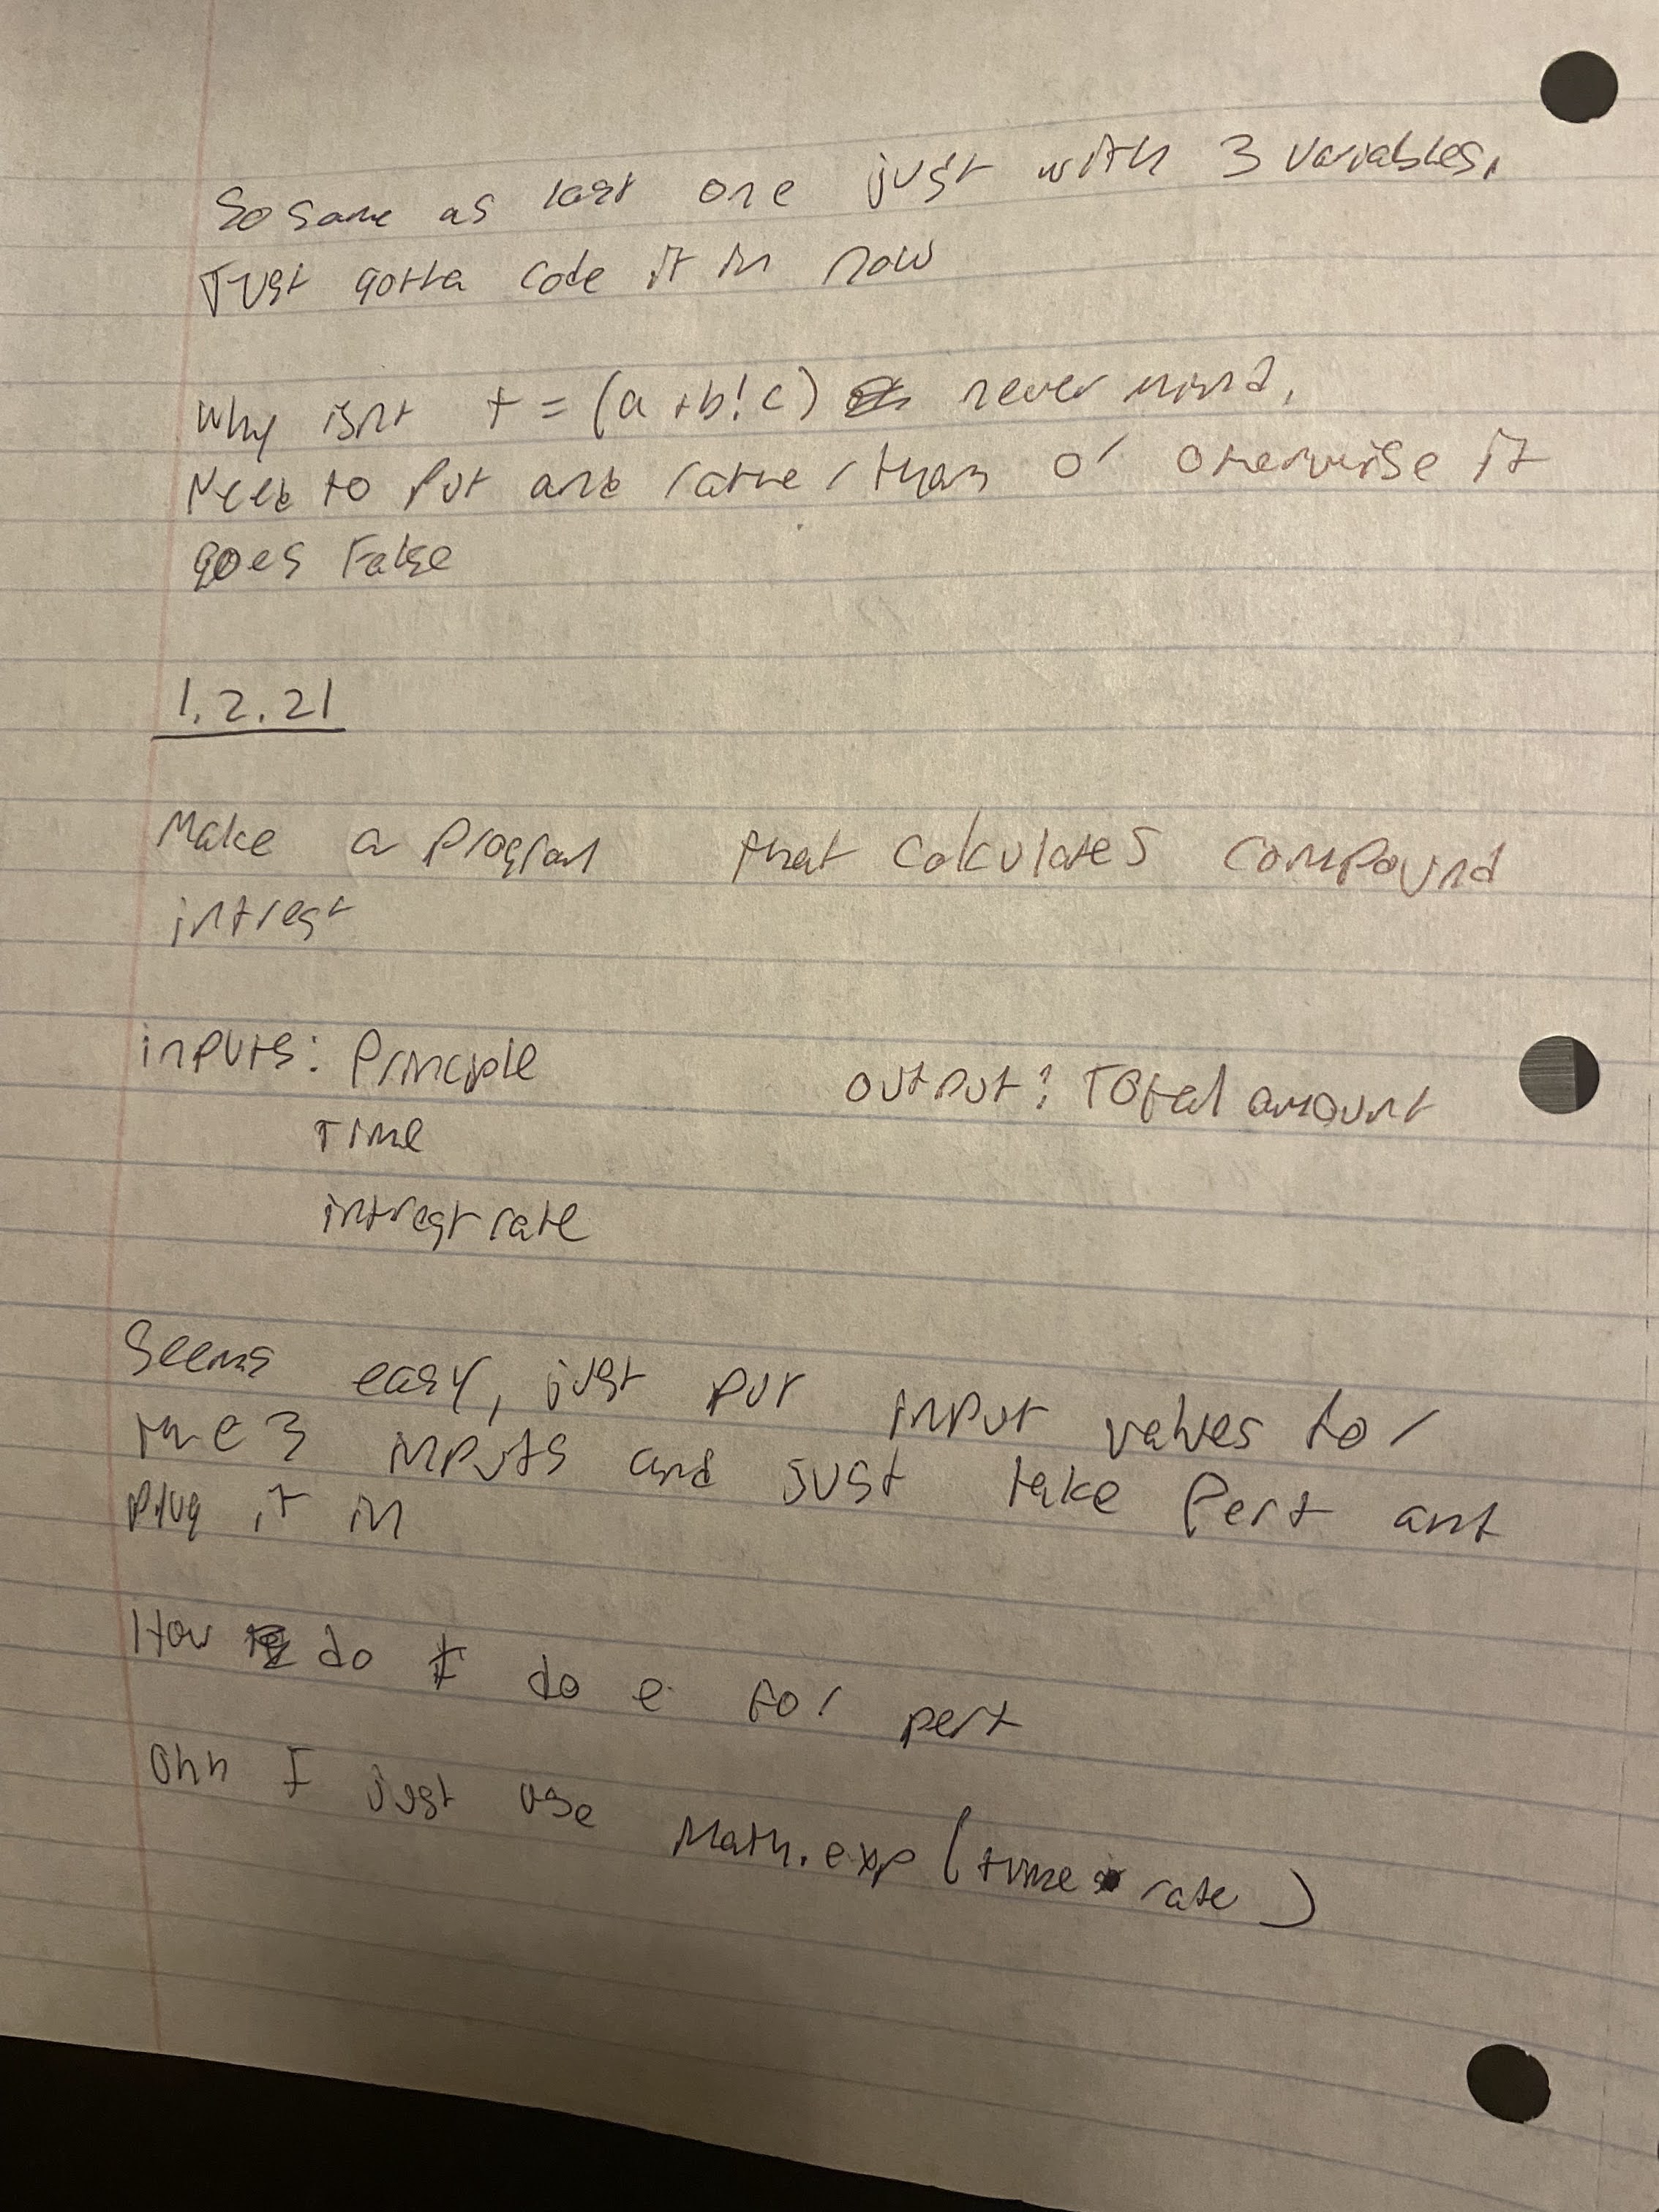 So same as last one just with 3 variables,
Just gotta code it in now
Why isnt t = (a+b!c) never mind,
Need to put and rather than or otherwise it
goes False
1.2.21
Make a program that calculates compound
intrest
inputs: Principle
output: Total amount
Time
intrest rate
Seems easy, just put input values for
the 3 inputs and just take Pert and
plug it in
How do I do e for pert
Ohh I just use Math.exp(time * rate)